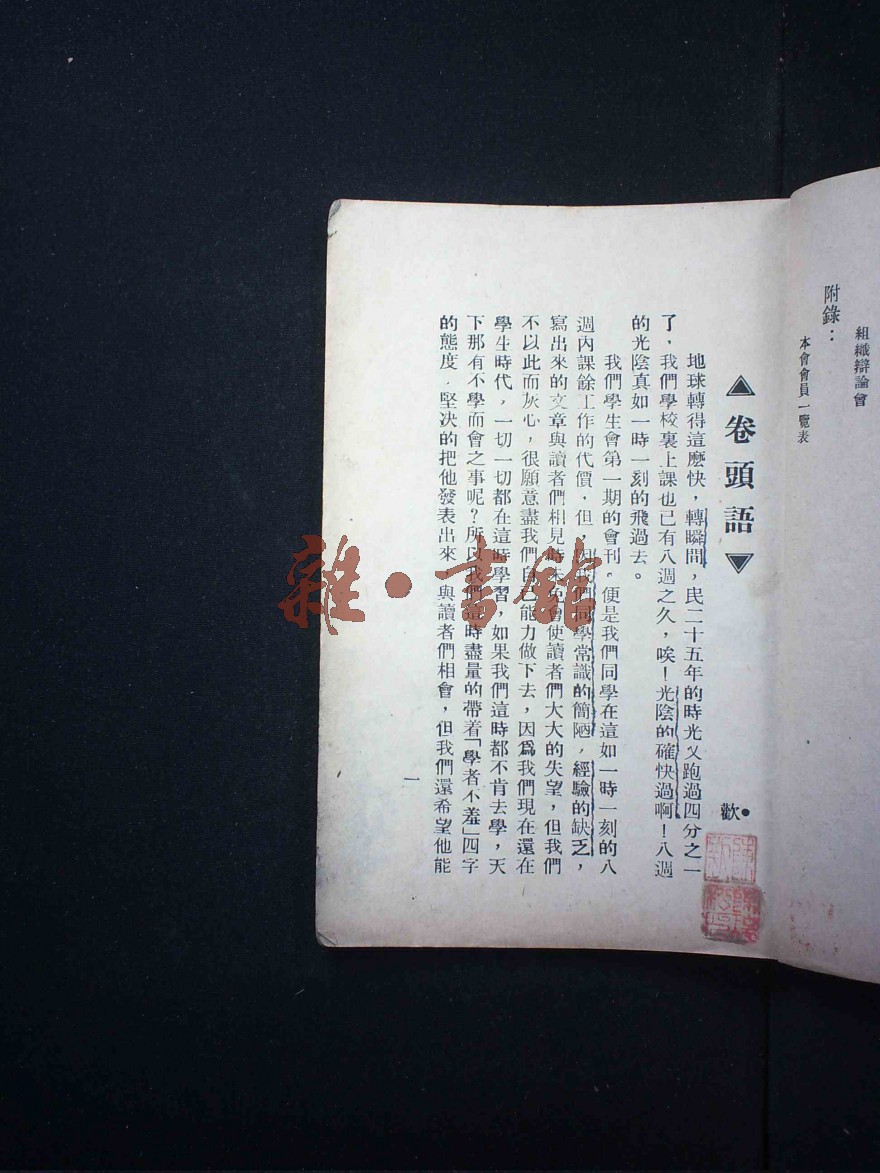 組織辯論會
附錄：
本會會員一覽表
▲卷頭語▼
•歡
地球轉得這麽快，轉瞬間，民二十五年的時光又跑過四分之一
了，我們學校裏上課也已有八週之久，唉！光陰的確快過啊！八週
的光陰真如一時一刻的飛過去。
我們學生會第一期的會刊。便是我們同學在這如一時一刻的八
週內課餘工作的代價，但，因我們同學常識的簡陋，經驗的缺乏，
寫出來的文章與讀者們相見時未免會使讀者們大大的失望，但我們
不以此而灰心，很願意盡我們自己能力做下去，因爲我們現在還在
學生時代，一切一切都在這時學習，如果我們這時都不肯去學，天
下那有不學而會之事呢？所以我們這時盡量的帶着「學者不羞」四字
的態度．堅决的把他發表出來，與讀者們相會，但我們還希望他能
一
雜·書館